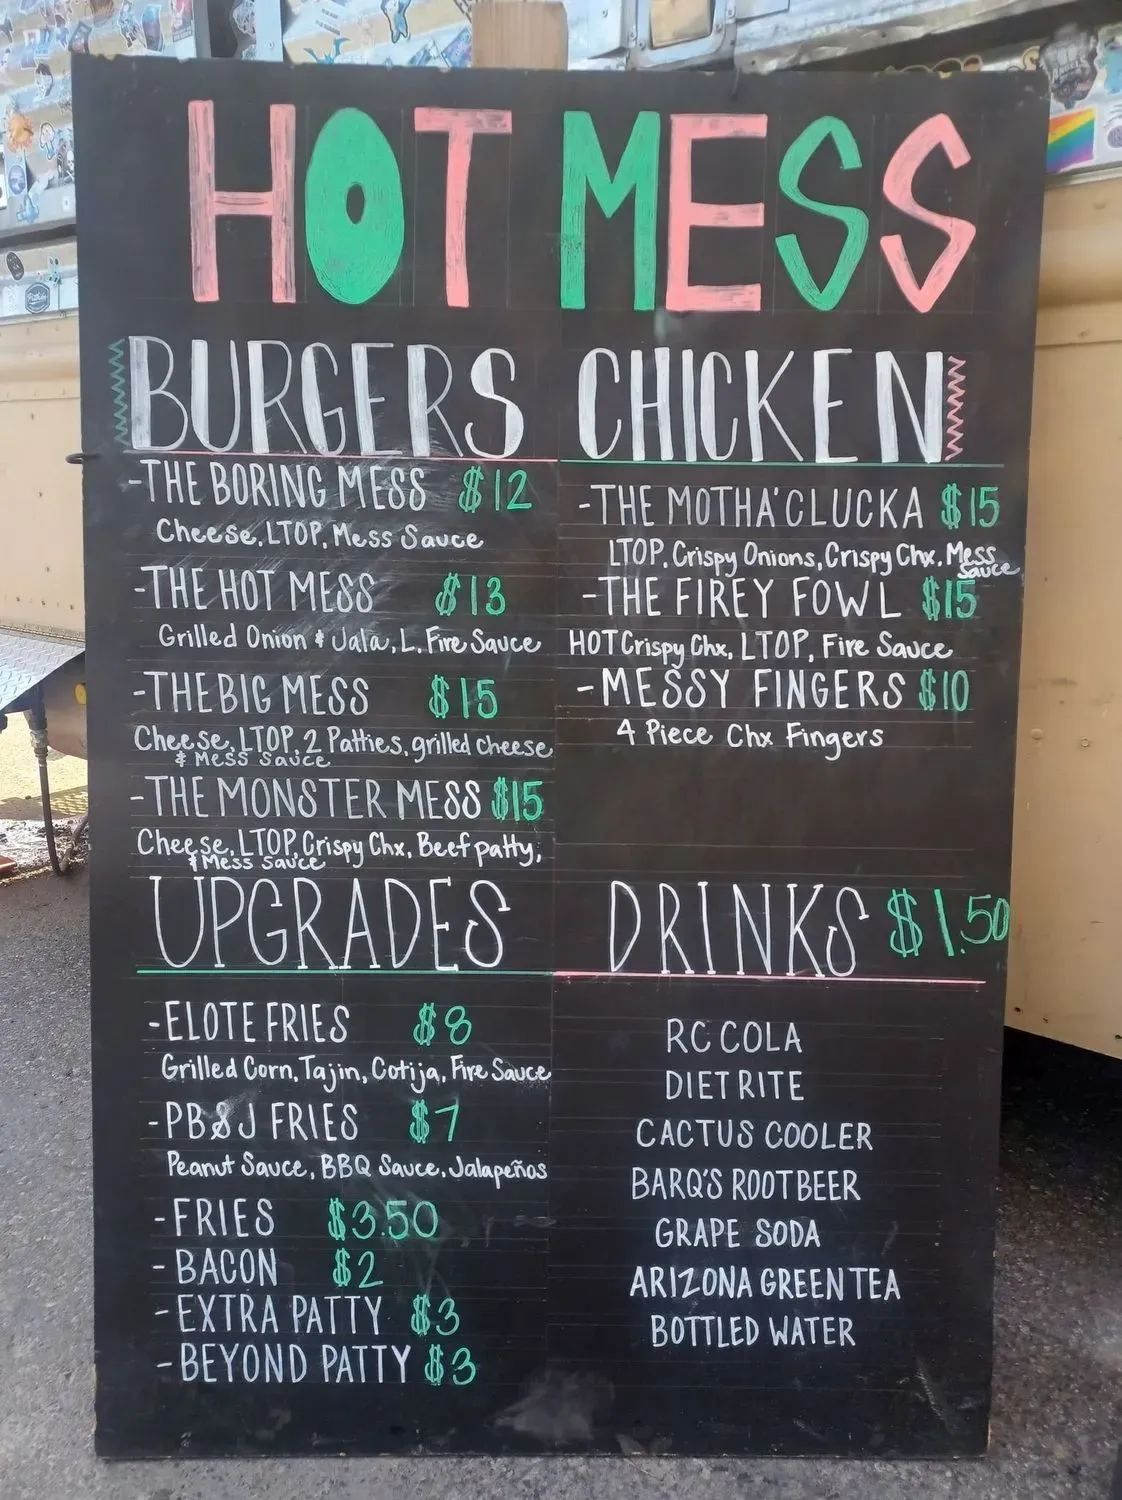 HOT MESS
BURGERS
-THE BORING MESS $12
Cheese, LTOP, Mess Sauce
-THE HOT MESS $13
Grilled Onion & Jala, L, Fire Sauce
-THE BIG MESS $15
Cheese, LTOP, 2 Patties, grilled cheese
& Mess Sauce
-THE MONSTER MESS $15
Cheese, LTOP, Crispy Chx, Beef patty,
& Mess Sauce
CHICKEN
-THE MOTHA'CLUCKA $15
LTOP, Crispy Onions, Crispy Chx, Mess
Sauce
-THE FIREY FOWL $15
HOT Crispy Chx, LTOP, Fire Sauce
-MESSY FINGERS $10
4 Piece Chx Fingers
UPGRADES
-ELOTE FRIES $8
Grilled Corn, Tajin, Cotija, Fire Sauce
-PB&J FRIES $7
Peanut Sauce, BBQ Sauce, Jalapeños
-FRIES $3.50
-BACON $2
-EXTRA PATTY $3
-BEYOND PATTY $3
DRINKS $1.50
RC COLA
DIET RITE
CACTUS COOLER
BARQ'S ROOTBEER
GRAPE SODA
ARIZONA GREEN TEA
BOTTLED WATER